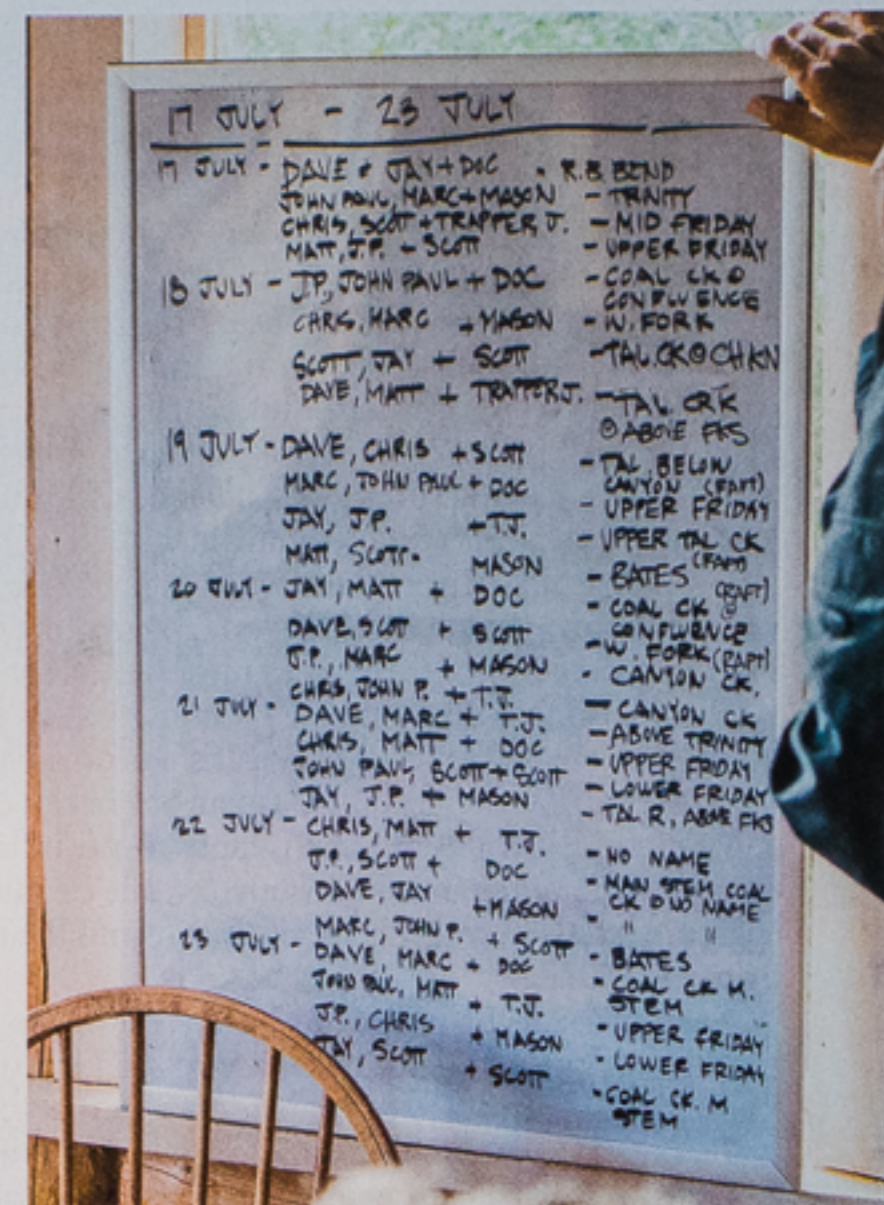 17 JULY - 23 JULY
17 JULY - DAVE + JAY + DOC - R.B. BEND
JOHN PAUL, MARC + MASON - TRINITY
CHRIS, SCOTT + TRAPPER J. - MID FRIDAY
MATT, J.P. + SCOTT - UPPER FRIDAY
18 JULY - J.P., JOHN PAUL + DOC - COAL CK @
CONFLUENCE
CHRIS, MARC + MASON - W. FORK
SCOTT, JAY + SCOTT - TAL. CK @ CHKN
DAVE, MATT + TRAPPER J. - TAL CRK
@ ABOVE FKS
19 JULY - DAVE, CHRIS + SCOTT - TAL. BELOW
CANYON (RAFT)
MARC, JOHN PAUL + DOC - UPPER FRIDAY
JAY, J.P. + T.J. - UPPER TAL CK
(RAFT)
MATT, SCOTT - MASON - BATES (RAFT)
20 JULY - JAY, MATT + DOC - COAL CK @
CONFLUENCE
DAVE, SCOTT + SCOTT - W. FORK (RAFT)
J.P., MARC + MASON - CANYON CK.
CHRIS, JOHN P. + T.J. - CANYON CK
21 JULY - DAVE, MARC + T.J. - ABOVE TRINITY
CHRIS, MATT + DOC - UPPER FRIDAY
JOHN PAUL, SCOTT + SCOTT - LOWER FRIDAY
JAY, J.P. + MASON - TAL R. ABOVE FKS
22 JULY - CHRIS, MATT + T.J. - NO NAME
J.P., SCOTT + DOC - MAIN STEM COAL
CK @ NO NAME
DAVE, JAY + MASON - " "
MARC, JOHN P. + SCOTT - BATES
23 JULY - DAVE, MARC + DOC - COAL CK M.
STEM
JOHN PAUL, MATT + T.J. - UPPER FRIDAY
J.P., CHRIS + MASON - LOWER FRIDAY
JAY, SCOTT + SCOTT - COAL CK. M
STEM